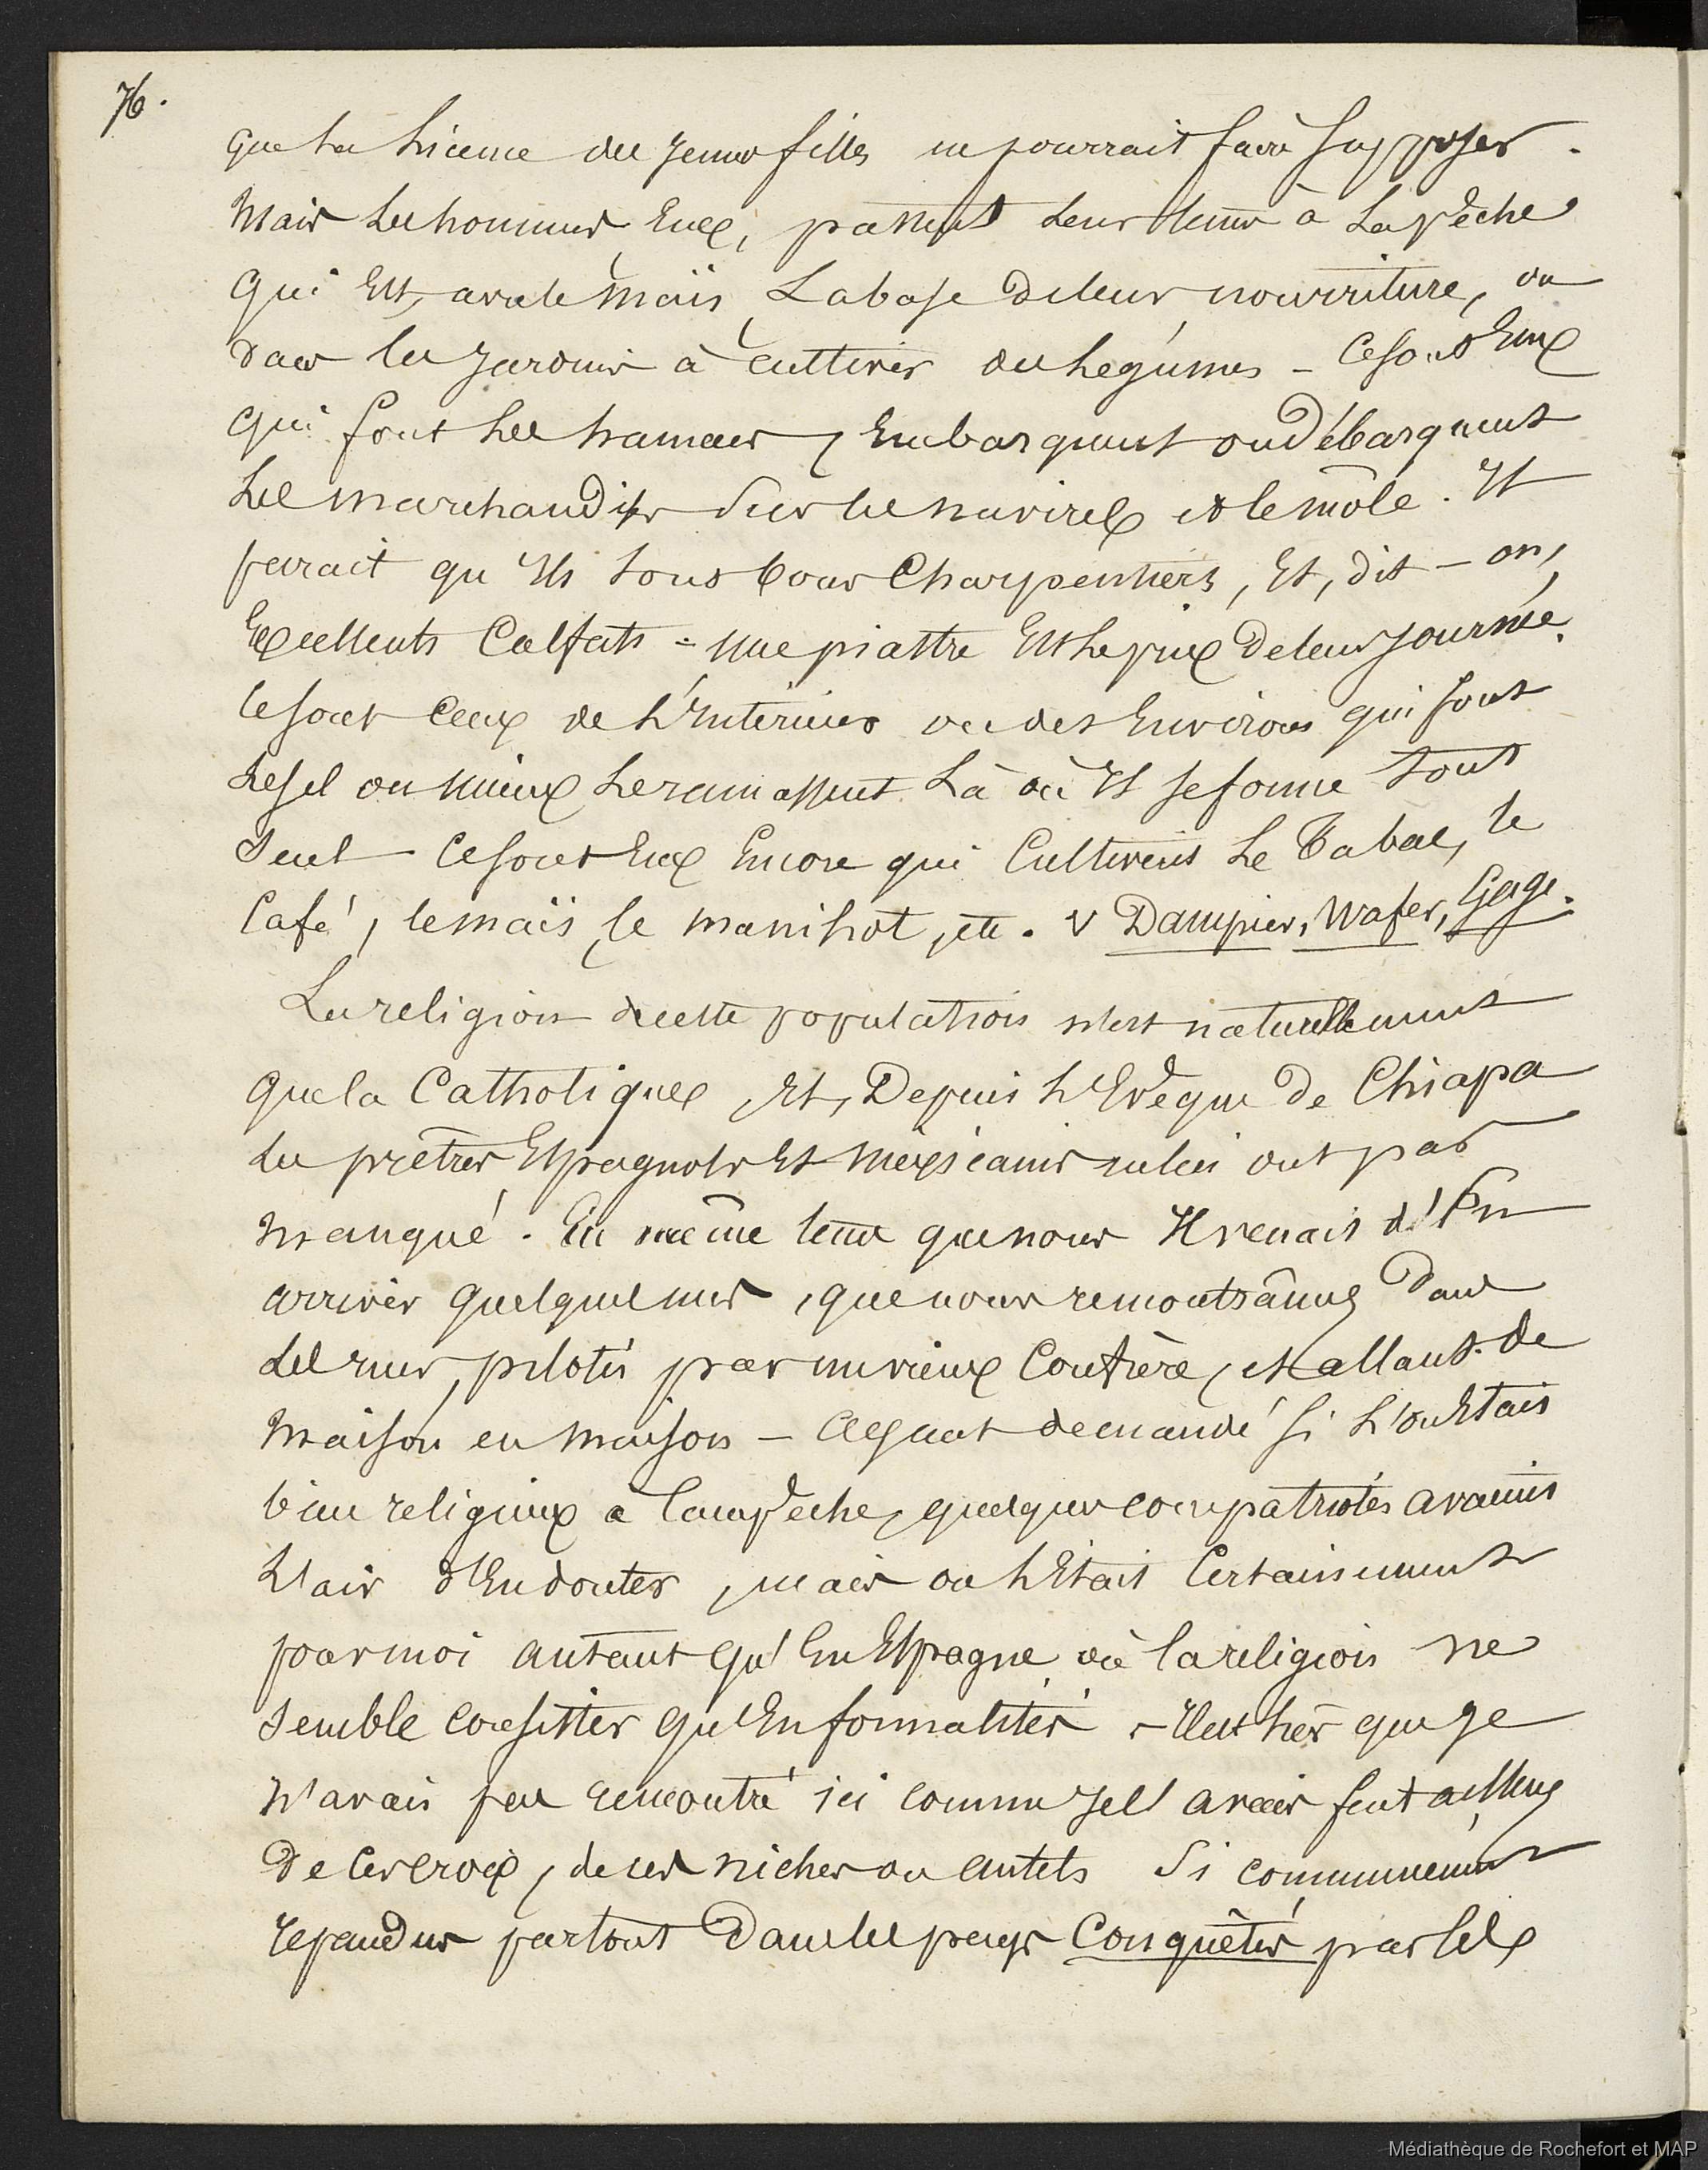 76.
que la licence des jeunes filles ne pourrait faire supposer.
Mais les hommes, Eux, passent leur tems à la pêche
qui Est, avec le Maïs, La base de leur nourriture, ou
dans les jardins à cultiver des Légumes - Ce sont Eux
qui font les hamacs, Embarquent ou Débarquent
les marchandises sur les navires et le môle. Il
parait qu'Ils sont bons Charpentiers, Et, dit-on,
Excellents Calfats = une piastre Est le prix de leur journée.
Ce sont Ceux de l'Intérieur ou des Environs qui font
le sel ou mieux le ramassent Là où Il se forme tout
seul - Ce sont Eux Encore qui Cultivent Le Tabac, le
Café, le maïs, le manihot, etc. V Dampier, Wafer, Gage.
La religion de cette population n'est naturellement
que la Catholique, Et, Depuis l'Evêque de Chiapa
les prêtres Espagnols Et Méxicains ne lui ont pas
manqué. En même tems que nous Il venait d'En
arriver quelques uns, que nous remontrâmes Dans
les rues, pilotés par un vieux Confrère, et allant de
Maison en Maison - Ayant demandé si l'on Etait
bien religieux à Campêche, quelques compatriotes avaient
L'air d'En douter, mais on l'Etait Certainement
pour moi autant qu'En Espagne où la religion ne
semble consister qu'En formalités - Il est vrai que je
n'avais pas rencontré ici comme je l'avais fait ailleurs
De Ces croix, de ces niches ou autels Si communément
répandus partout Dans les pays Conquêtés par les
Médiathèque de Rochefort et MAP